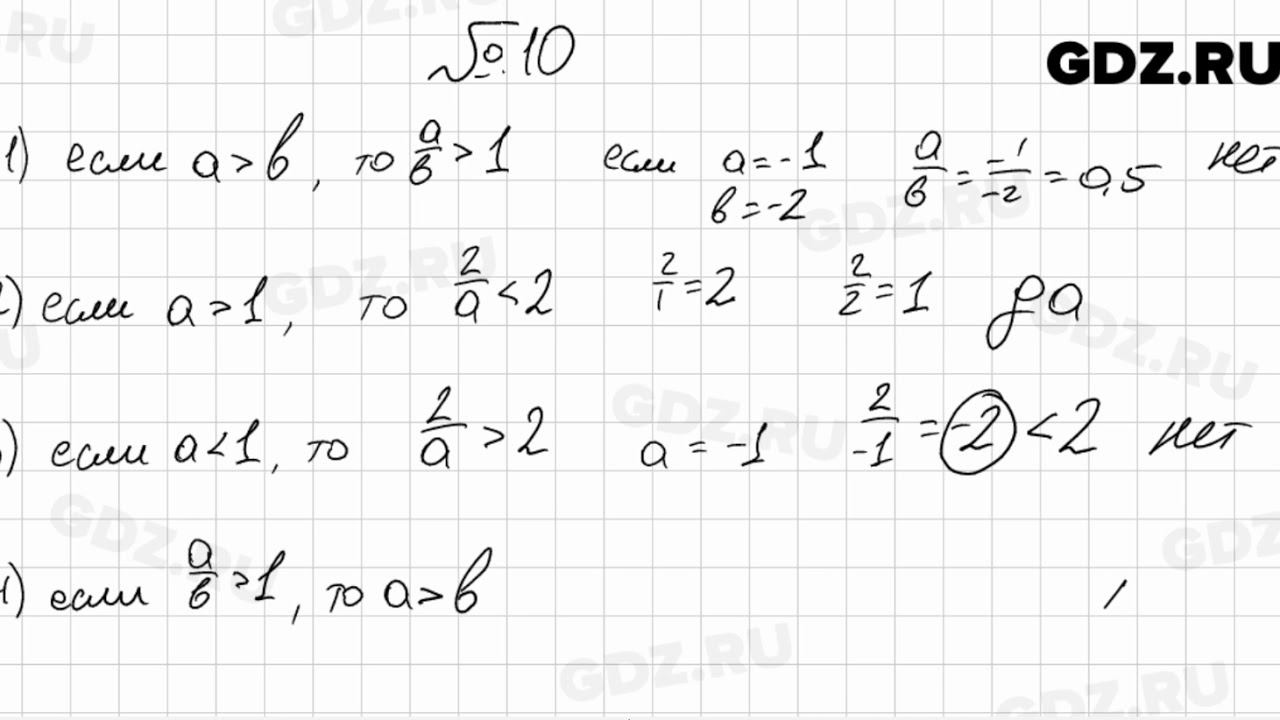 №10
GDZ.RU
1) если a > b, то a/b > 1 если a = -1 b = -2 a/b = -1/-2 = 0,5 нет
2) если a > 1, то 2/a < 2 2/1 = 2 2/2 = 1 да
) если a < 1, то 2/a > 2 a = -1 2/-1 = -2 < 2 нет
4) если a/b > 1, то a > b